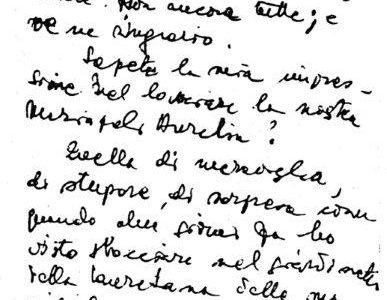 Non ancora tutte; e
ve ne ringrazio.
Sapete la mia impres-
sione nel lasciare la nostra
Aurelia?
Quella di meraviglia,
di stupore, di sorpresa come
quando due giorni fa ho
visto sbocciare nel giardinetto
della delle